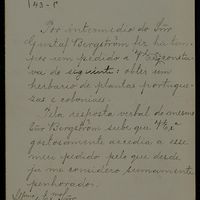 143-C
Por intermedio do Snr
Gustaf Bergström fiz ha tem-
pos um pedido a V. Ex.ª consta-
va do seguinte: obter um
herbario de plantas portugue-
sas e coloniaes.
Pela resposta verbal do mesmo
Snr Bergström sube que V. Ex.ª
gostosamente accedia a esse
meu pedido pelo que desde
ja me considero summamente
penhorado.